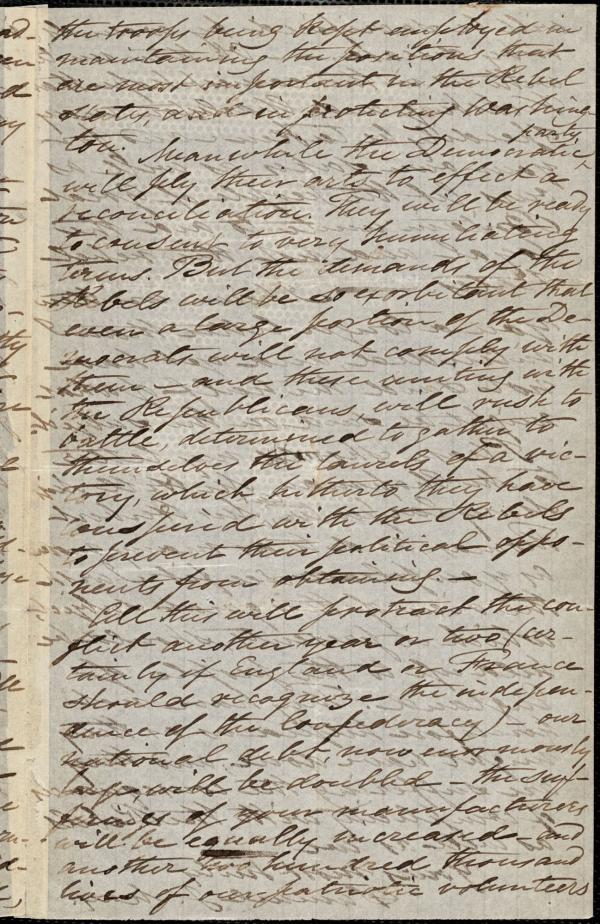 the troops being kept employed in
maintaining the positions that
are most important in the Rebel
States, and in protecting Washing-
ton. Meanwhile the Democratic party
will ply their arts to effect a
reconciliation. They will be ready
to consent to very humiliating
terms. But the demands of the
Rebels will be so exorbitant that
even a large portion of the De-
mocrats will not comply with
them — and these uniting with
the Republicans, will rush to
battle, determined to gather to
themselves the laurels of a vic-
tory, which hitherto they have
conspired with the Rebels
to prevent their political oppo-
nents from obtaining. —
All this will protract the con-
flict another year or two (cer-
tainly if England or France
should recognize the indepen-
dence of the Confederacy) — our
national debt, now enormously
large, will be doubled — the suf-
ferings of your manufacturers
will be equally increased — and
another two hundred thousand
lives of our patriotic volunteers